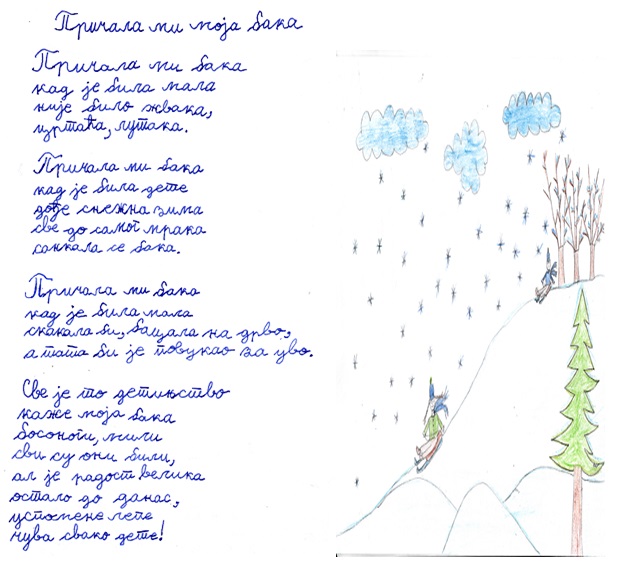 Причала ми моја бака
Причала ми бака
кад је била мала
није било жвака,
цртаћа, лутака.
Причала ми бака
кад је била дете
дође снежна зима
све до самог мрака
санкала се бака.
Причала ми бака
кад је била мала
скакала би, бацала на дрво,
а тата би је повукао за уво.
Све је то детињство
каже моја бака
босоноги, мили
сви су они били,
ал је радост велика
остало до данас,
успомене лепе
чува свако дете!